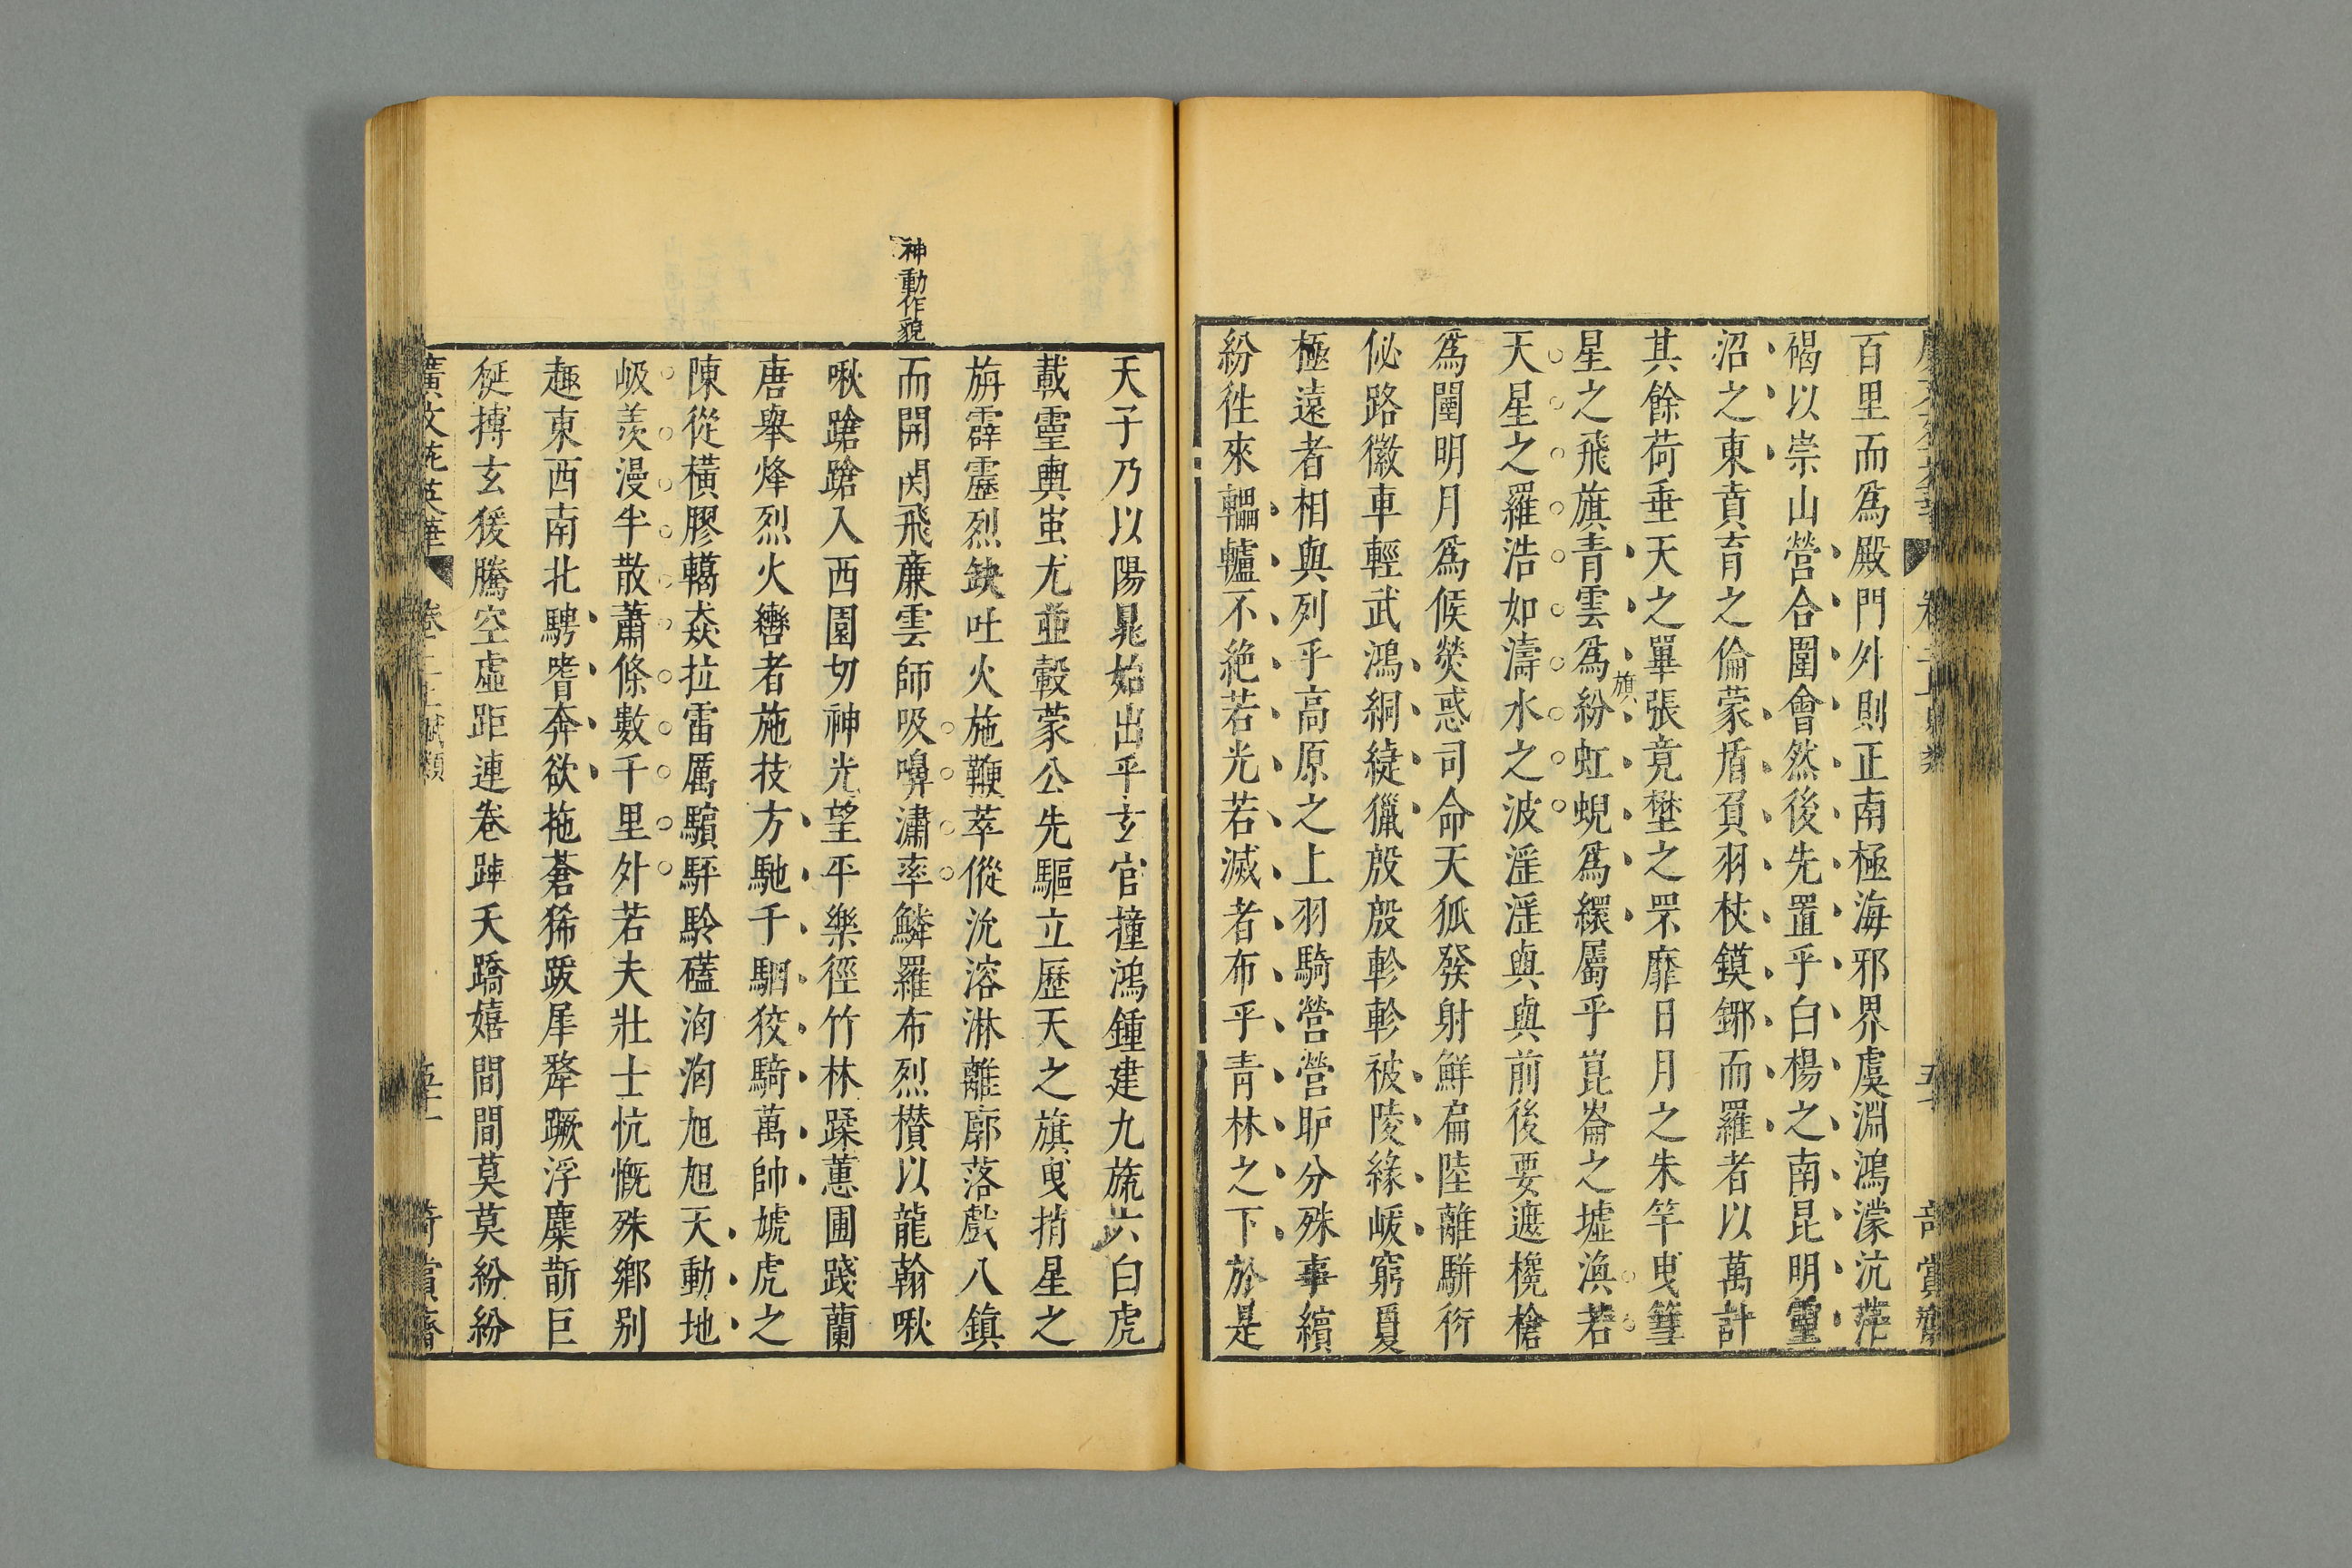 百里而爲殿門外則正南極海邪界虞淵鴻濛沆茫
褐以崇山營合圍會然後先置乎白楊之南昆明靈
沼之東賁育之倫蒙盾負羽杖鏌鎁而羅者以萬計
其餘荷垂天之畢張竟壄之罘靡日月之朱竿曳篲
星之飛旗青雲爲紛虹蜺爲繯屬乎崑崙之墟渙若
旗
天星之羅浩如濤水之波淫淫與與前後要遮欃槍
爲闉明月爲候熒惑司命天狐發射鮮扁陸離駢衍
佖路徽車輕武鴻絧緁獵殷殷軫軫被陵緣岅窮夐
極遠者相與列乎高原之上羽騎營營昈分殊事繽
紛徃來轠轤不絕若光若滅者布乎青林之下於是
神動作貌
天子乃以陽鼂始出乎玄官撞鴻鍾建九旒六白虎
載靈輿蚩尤並轂蒙公先驅立歷天之旗曳捎星之
旃霹靂烈缺吐火施鞭萃傱沇溶淋離廓落戲八鎮
而開関飛廉雲師吸嚊潚率鱗羅布烈攅以龍翰啾
啾蹌蹌入西園切神光望平樂徑竹林蹂蕙圃踐蘭
唐舉烽烈火轡者施技方馳千駟狡騎萬帥虓虎之
陳從横膠轕猋拉雷厲驞駍駖礚洶洶旭旭天動地
岋羨漫半散蕭條數千里外若夫壯士忼慨殊鄉别
趣東西南北騁嗜奔欲拖蒼狶跋犀犛蹶浮麋斮巨
狿搏玄猨騰空虛距連卷踔夭蹻嬉間間莫莫紛紛
廣文苑英華